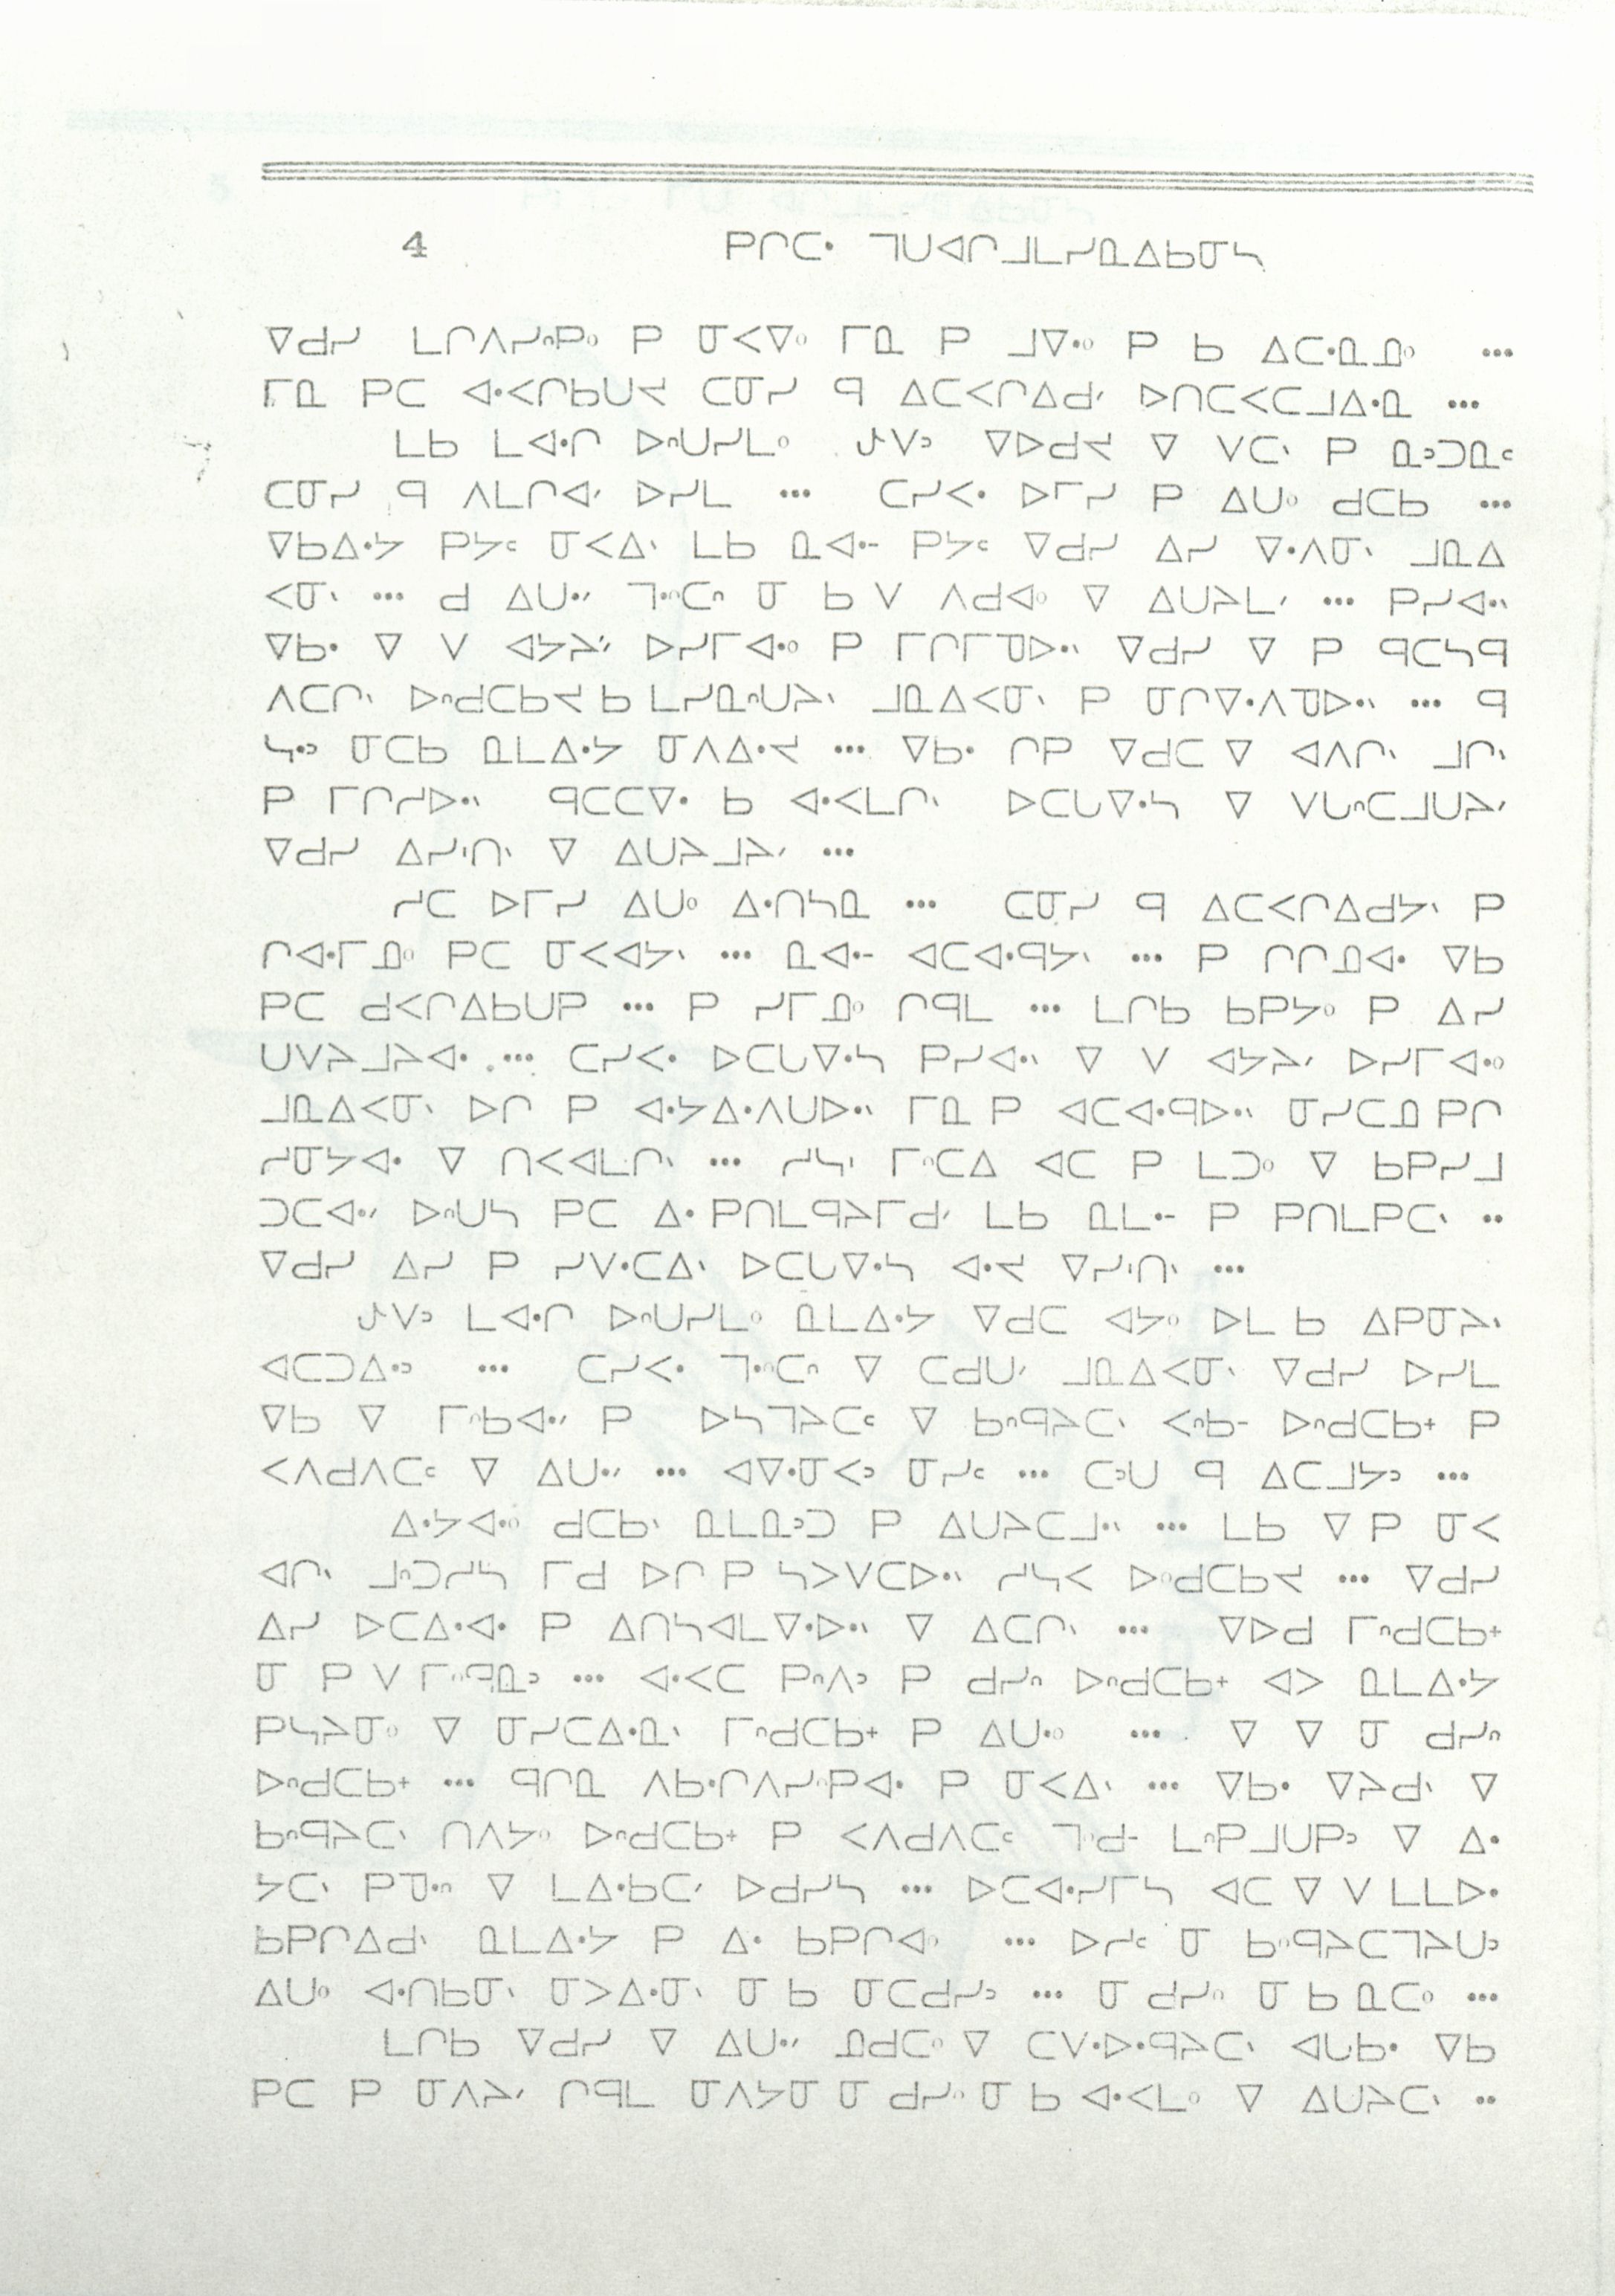 4 ᑭᒋᑕᐧ ᒣᑌᐊᒋᒧᒪᓯᓇᐃᑲᓂᓴ
ᐁᑯᓯ ᒪᒋᐱᓯᐢᑭᐤ ᑭ ᓂᐸᐁᐧᐤ ᒥᓇ ᑭ ᒧᐁᐧᐤ ᑭ ᑲ ᐃᑕᐧᓇᓄᐤ ...
ᒥᓇ ᑭᑕ ᐊᐧᐸᒋᑲᑌᔪ ᑕᓂᓯ ᑫ ᐃᑕᐸᒋᐃᑯᐟ ᐅᑎᑕᐸᑕᒧᐃᐧᓇ ...
ᒪᑲ ᒪᐊᐧᒋ ᐅᐢᑌᓯᒪᐤ ᓮᐯᐣ ᐁᐅᑯᔪ ᐁ ᐯᑕᐠ ᑭ ᓇᐣᑐᓇᒼ
ᑕᓂᓯ ᑫ ᐱᒪᒋᐊᐟ ᐅᓯᒪ ... ᑕᓯᐸᐧ ᐅᒥᓯ ᑭ ᐃᑌᐤ ᑯᑕᑲ ...
ᐁᑲᐃᐧᔭ ᑭᔭᒼ ᓂᐸᐃᐠ ᒪᑲ ᓇᐊᐧᐨ ᑭᔭᒼ ᐁᑯᓯ ᐃᓯ ᐁᐧᐱᓂᐠ ᒧᓇᐃ
ᐸᓂᐠ ... ᑯ ᐃᑌᐧᐟ ᒣᐧᐢᑕᐢ ᓂ ᑲ ᐯ ᐱᑯᐊᐤ ᐁ ᐃᑌᔨᒪᐟ ... ᑭᓯᐊᐧᐠ
ᐁᑲᐧ ᐁ ᐯ ᐊᔭᔨᐟ ᐅᓯᒥᐊᐧᐤ ᑭ ᒥᒋᒥᓀᐅᐧᐠ ᐁᑯᓯ ᐁ ᑭ ᑫᑕᓴᑫ
ᐱᑕᒋᐠ ᐅᐢᑯᑕᑲᔪ ᑲ ᒪᓯᓇᐢᑌᔨᐠ ᒧᓇᐃᐸᓂᐠ ᑭ ᓂᒋᐁᐧᐱᓀᐅᐧᐠ ... ᑫ
ᓴᐧᐣ ᓂᑕᑲ ᓇᒪᐃᐧᔭ ᓂᐱᐃᐧᔪ ... ᐁᑲᐧ ᒋᑭ ᐁᑯᑕ ᐁ ᐊᐱᒋᐠ ᒧᒋᐠ
ᑭ ᒥᒋᓱᐅᐧᐠ ᑫᑕᑕᐁᐧ ᑲ ᐊᐧᐸᒪᒋᐠ ᐅᑕᒐᐁᐧᓴ ᐁ ᐯᒐᐢᑕᒧᑌᔨᐟ
ᐁᑯᓯ ᐃᓯᑊᑎᐠ ᐁ ᐃᑌᔨᒧᔨᐟ ...
ᓱᑕ ᐅᒥᓯ ᐃᑌᐤ ᐃᐧᑎᓴᓇ ... ᑕᓂᓯ ᑫ ᐃᑕᐸᒋᐃᑯᔭᐠ ᑭ
ᒋᐊᐧᒥᓄᐤ ᑭᑕ ᓂᐸᐊᔭᐠ ... ᓇᐊᐧᐨ ᐊᑕᐊᐧᑫᔭᐠ ... ᑭ ᒋᒋᓄᐊᐧ ᐁᑲ
ᑭᑕ ᑯᐸᒋᐃᑲᑌᑭ ... ᑭ ᓯᒥᓄᐤ ᒋᑫᒪ ... ᒪᒋᑲ ᑲᑭᔭᐤ ᑭ ᐃᓯ
ᑌᐯᔨᒧᔨᐊᐧ ... ᑕᓯᐸᐧ ᐅᑕᒐᐁᐧᓴ ᑭᓯᐊᐧᐠ ᐁ ᐯ ᐊᔭᔨᐟ ᐅᓯᒥᐊᐧᐤ
ᒧᓇᐃᐸᓂᐠ ᐅᒋ ᑭ ᐊᐧᔭᐃᐧᐱᑌᐅᐧᐠ ᒥᓇ ᑭ ᐊᑕᐊᐧᑫᐅᐧᐠ ᓂᓱᑕᓄ ᑭᒋ
ᓱᓂᔭᐊᐧ ᐁ ᑎᐸᐊᒪᒋᐠ ... ᓱᓴᐠ ᒥᐢᑕᐃ ᐊᑕ ᑭ ᒪᑐᐤ ᐁ ᑲᑭᓯᒧ
ᑐᑕᐊᐧᐟ ᐅᐢᑌᓴ ᑭᑕ ᐃᐧ ᑭᑎᒪᑫᔨᒥᑯᐟ ᒪᑲ ᓇᒪᐧᐨ ᑭ ᑭᑎᒪᑭᑕᐠ ..
ᐁᑯᓯ ᐃᓯ ᑭ ᓯᐯᐧᑕᐃᐠ ᐅᑕᒐᐁᐧᓴ ᐊᐧᔪ ᐁᓯᑊᑎᐠ ...
ᓮᐯᐣ ᒪᐊᐧᒋ ᐅᐢᑌᓯᒪᐤ ᓇᒪᐃᐧᔭ ᐁᑯᑕ ᐊᔭᐤ ᐅᒪ ᑲ ᐃᑭᓂᔨᐠ
ᐊᑕᑐᐃᐧᐣ ... ᑕᓯᐸᐧ ᒣᐧᐢᑕᐢ ᐁ ᑕᑯᑌᐟ ᒧᓇᐃᐸᓂᐠ ᐁᑯᓯ ᐅᓯᒪ
ᐁᑲ ᐁ ᒥᐢᑲᐊᐧᐟ ᑭ ᐅᓴᒣᔨᑕᒼ ᐁ ᑲᐢᑫᔨᑕᐠ ᐸᐢᑲᐨ ᐅᐢᑯᑕᑲᕀ ᑭ
ᐸᐱᑯᐱᑕᒼ ᐁ ᐃᑌᐧᐟ ... ᐊᐁᐧᓂᐸᐣ ᓂᓯᒼ ... ᑕᐣᑌ ᑫ ᐃᑕᒧᔭᐣ ...
ᐃᐧᔭᐊᐧᐤ ᑯᑕᑲᐠ ᓇᒪᓇᐣᑐ ᑭ ᐃᑌᔨᑕᒧᐧᐠ ... ᒪᑲ ᐁ ᑭ ᓂᐸ
ᐊᒋᐠ ᒧᐢᑐᓱᓴ ᒥᑯ ᐅᒋ ᑭ ᓴᐳᐯᑕᐅᐧᐠ ᓱᓴᐸ ᐅᐢᑯᑕᑲᔪ ... ᐁᑯᓯ
ᐃᓯ ᐅᑕᐃᐧᐊᐧ ᑭ ᐃᑎᓴᐊᒪᐁᐧᐅᐧᐠ ᐁ ᐃᑕᒋᐠ ... ᐁᐅᑯ ᒥᐢᑯᑕᑲᕀ
ᓂ ᑭ ᐯ ᒥᐢᑫᓇᐣ ... ᐊᐧᐸᑕ ᑭᐢᐱᐣ ᑭ ᑯᓯᐢ ᐅᐢᑯᑕᑲᕀ ᐊᐳ ᓇᒪᐃᐧᔭ
ᑭᓴᔨᓂᐤ ᐁ ᓂᓯᑕᐃᐧᓇᐠ ᒥᐢᑯᑕᑲᕀ ᑭ ᐃᑌᐧᐤ ... ᐁ ᐁ ᓂ ᑯᓯᐢ
ᐅᐢᑯᑕᑲᕀ ... ᑫᒋᓇ ᐱᑲᐧᒋᐱᓯᐢᑭᐊᐧ ᑭ ᓂᐸᐃᐠ ... ᐁᑲᐧ ᐁᔨᑯᐠ ᐁ
ᑲᐢᑫᔨᑕᐠ ᑎᐱᔭᐤ ᐅᐢᑯᑕᑲᕀ ᑭ ᐸᐱᑯᐱᑕᒼ ᒣᐢᑯᐨ ᒪᐢᑭᒧᑌᑭᐣ ᐁ ᐃᐧ
ᔭᑕᐠ ᑭᓀᐧᐢ ᐁ ᒪᐃᐧᑲᑕᐟ ᐅᑯᓯᓴ ... ᐅᑕᐊᐧᓯᒥᓴ ᐊᑕ ᐁ ᐯ ᒪᒪᐅᐧ
ᑲᑭᒋᐃᑯᐠ ᓇᒪᐃᐧᔭ ᑭ ᐃᐧ ᑲᑭᒋᐊᐤ ... ᐅᓱᒼ ᓂ ᑲᐢᑫᔨᑕᒣᔨᑌᐣ
ᐃᑌᐤ ᐊᐧᑎᑲᓂᐠ ᓂᐳᐃᐧᓂᐠ ᓂ ᑲ ᓂᑕᑯᓯᐣ ... ᓂ ᑯᓯᐢ ᓂ ᑲ ᓇᑕᐤ ...
ᒪᒋᑲ ᐁᑯᓯ ᐁ ᐃᑌᐧᐟ ᓄᑯᑕᐤ ᐁ ᑕᐯᐧᐅᐧᑫᔨᑕᐠ ᐊᒐᑲᐧ ᐁᑲ
ᑭᑕ ᑭ ᓂᐱᔨᐟ ᒋᑫᒪ ᓂᐱᔭᓂ ᓂ ᑯᓯᐢ ᓂ ᑲ ᐊᐧᐸᒪᐤ ᐁ ᐃᑌᔨᑕᐠ ..